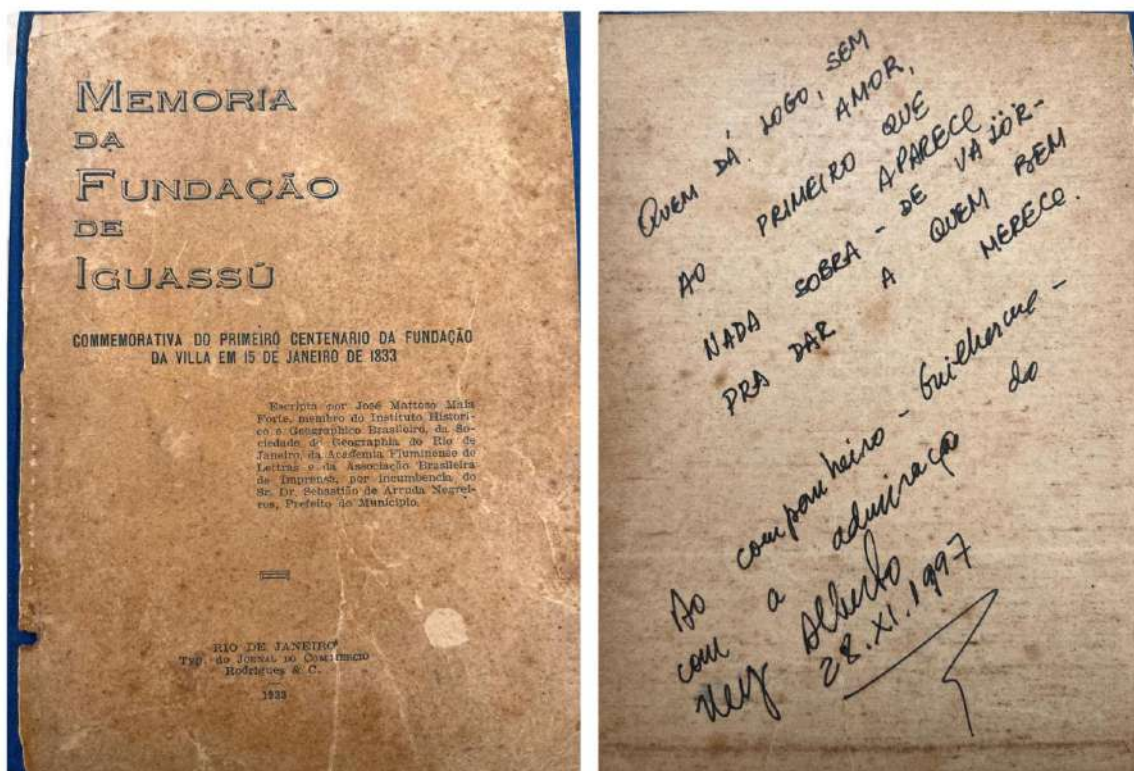 MEMORIA
DA
FUNDAÇÃO
DE
IGUASSÚ
COMMEMORATIVA DO PRIMEIRO CENTENARIO DA FUNDAÇÃO
DA VILLA EM 15 DE JANEIRO DE 1833
Escripta por José Mattoso Maia
Forte, membro do Instituto Histori-
co e Geographico Brasileiro, da So-
ciedade de Geographia do Rio de
Janeiro, da Academia Fluminense de
Lettras e da Associação Brasileira
de Imprensa, por incumbencia do
Sr. Dr. Sebastião de Arruda Negrei-
ros, Prefeito do Municipio.
RIO DE JANEIRO
Typ. do JORNAL DO COMMERCIO
Rodrigues & C.
1933
QUEM DÁ LOGO, SEM
AMOR,
AO PRIMEIRO QUE
APARECE
NADA SOBRA - DE VALÔR-
PRA DAR A QUEM BEM
MERECE.
Ao companheiro - Guilherme -
com a admiração do
Ney Alberto
28.XI.1997